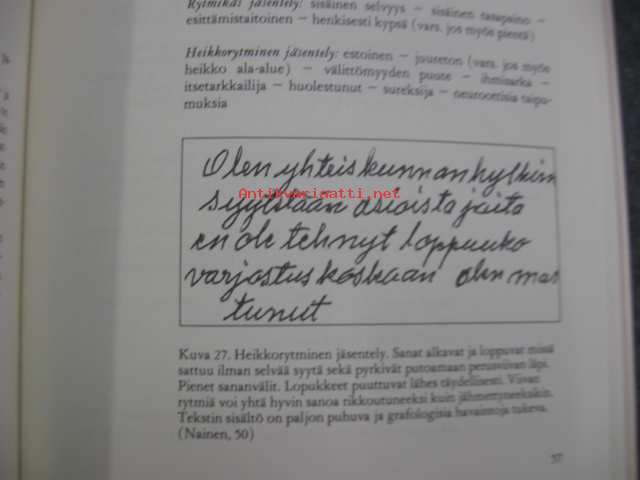 Rytmikäs jäsentely: sisäinen selvyys – sisäinen tasapaino –
esittämistaitoinen – henkisesti kypsä (vars. jos myös pieneä)
Heikkorytminen jäsentely: estoinen – juureton (vars. jos myös
heikko ala-alue) – välittömyyden puute – ihmisarka –
itsetarkkailija – huolestunut – sureksija – neuroottisia taipu-
muksia
Olen yhteiskunnan hylkim
syytetään asioista joita
en ole tehnyt loppuuko
varjostus koskaan olen mas
tunut
Antikvariaatti.net
Kuva 27. Heikkorytminen jäsentely. Sanat alkavat ja loppuvat missä
sattuu ilman selvää syytä sekä pyrkivät putoamaan perusviivan läpi.
Pienet sananvälit. Lopukkeet puuttuvat lähes täydellisesti. Viivan
rytmiä voi yhtä hyvin sanoa rikkoutuneeksi kuin jähmettyneeksikin.
Tekstin sisältö on paljon puhuva ja grafologisia havaintoja tukeva.
(Nainen, 50)
57